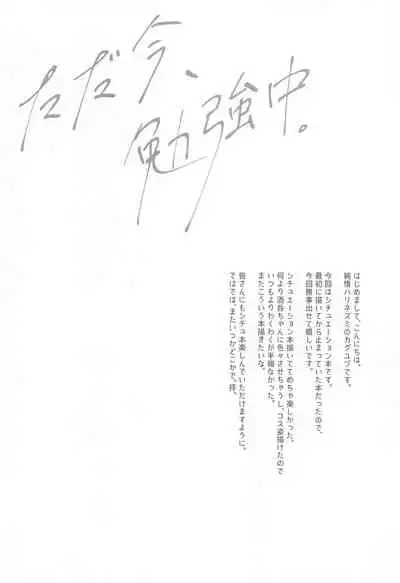 ただ今、
勉強中。
はじめまして、こんにちは。
純情ハリネズミのカグユヅです。
今回はシチュエーション本です。
最初に描いてから止まっていた本だったので、
今回無事出せて嬉しいです。
シチュエーション本描いててめちゃ楽しかった。
何より酒呑ちゃんに色々させちゃうし、コス姿描けたので
いつもよりわくわくが半端なかった。
またこういう本描きたいな。
皆さんにもシチュ本楽しんでいただけますように。
ではでは、またいつかどこかで。拝、